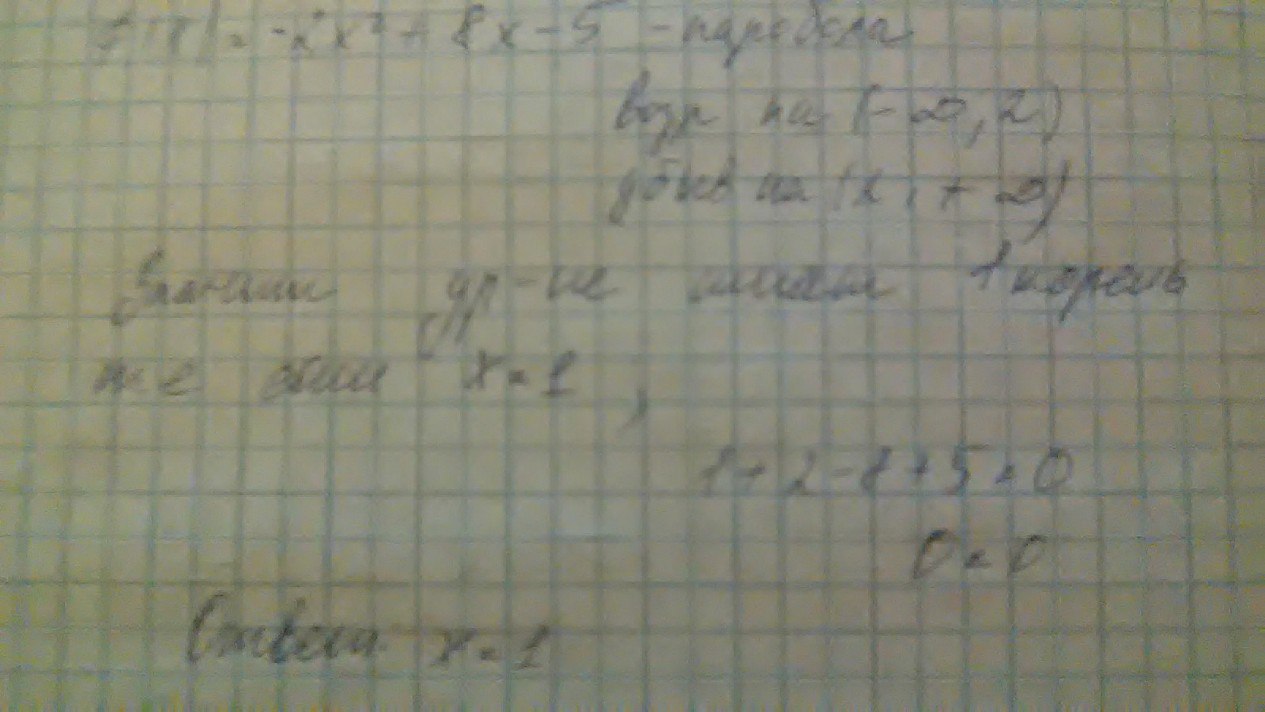 f(x) = -2x² + 8x - 5 - парабола
возр на (-∞, 2)
убыв на (2, +∞)
Значит ур-ие имеет 1 корень
т.е. отв x = 1,
1 + 2 - 8 + 5 = 0
0 = 0
Ответ x = 1